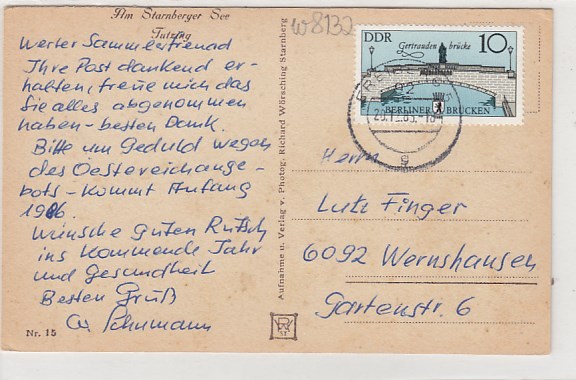 Am Starnberger See
Tutzing
w8132
Werter Sammlerfreund
Ihre Post dankend er-
halten, freue mich das
Sie alles abgenommen
haben - besten Dank.
Bitte um Geduld wegen
des Oestereichange-
bots - Kommt Anfang
1986.
Wünsche guten Rutsch
ins kommende Jahr
und Gesundheit
Besten Gruß
Nr. 15
Aufnahme u. Verlag v. Photogr. Richard Wörsching Starnberg
DDR
10
Gertraudenbrücke
BERLINER BRÜCKEN
Herrn
Lutz Finger
6092 Wernshausen
Gartenstr. 6